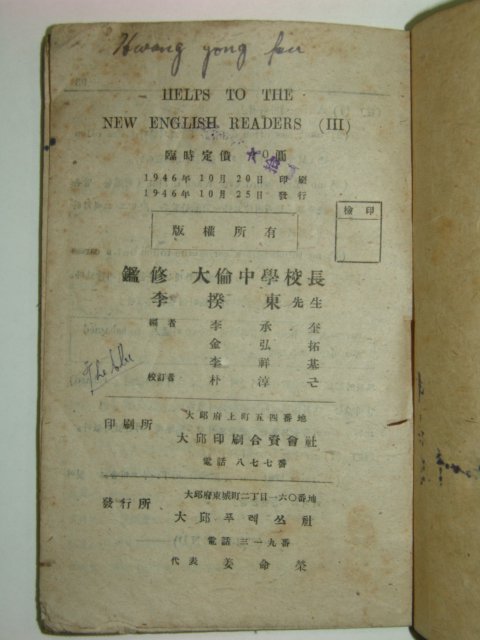 Hwang yong
HELPS TO THE
NEW ENGLISH READERS (III)
臨時定價 0圓
1946年 10月 20日 印刷
1946年 10月 25日 發行
檢印
版權所有
鑑修 大倫中學校長
李揆東先生
編者 李承奎
金弘拓
李祥基
校訂者 朴淳근
印刷所
大邱府上町五四番地
大邱印刷合資會社
電話 八七七番
發行所
大邱府東城町二丁目一六〇番地
大邱프레쓰社
電話 三一九番
代表 姜命榮